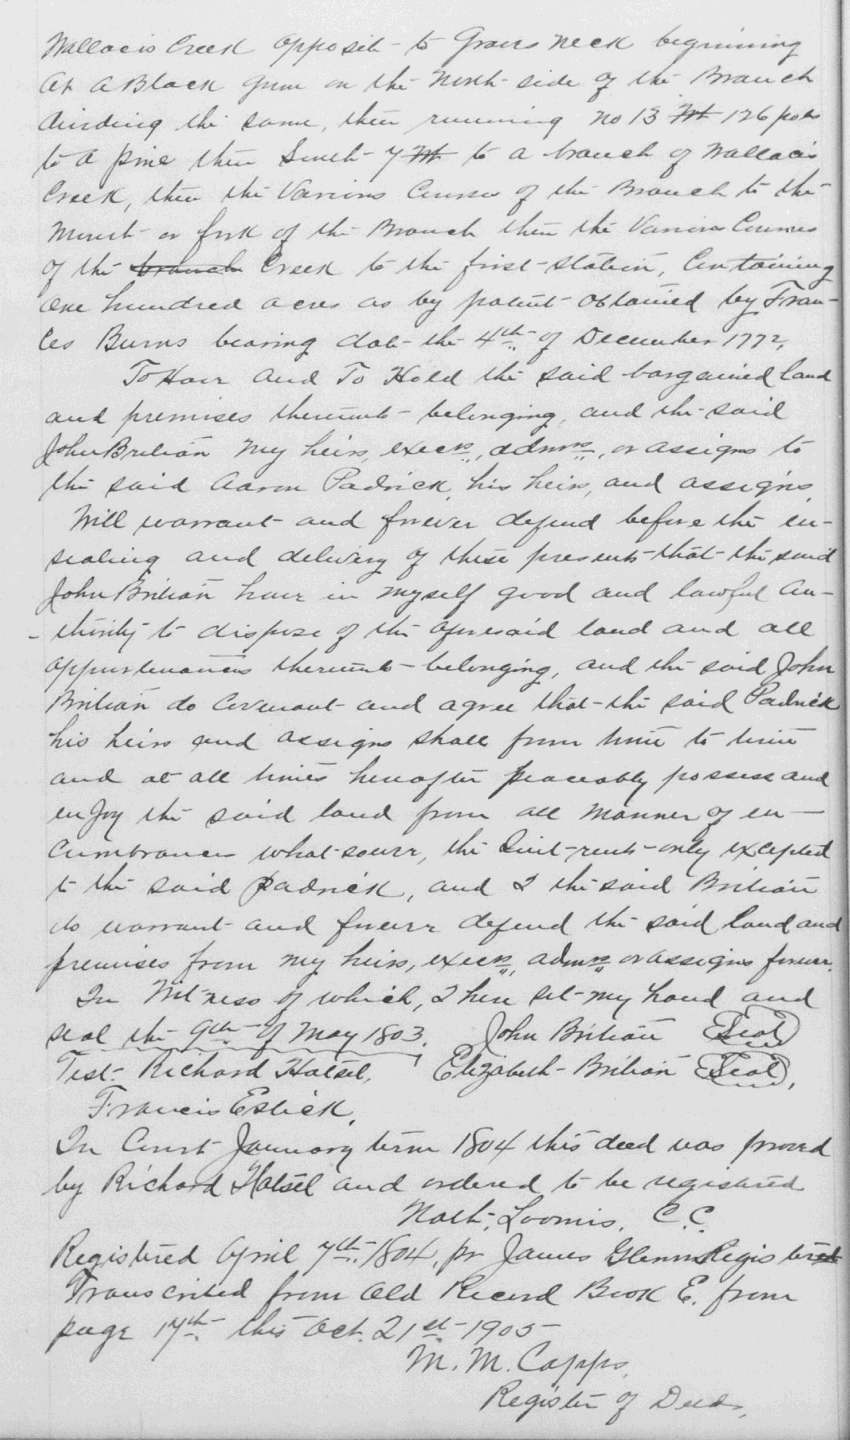 Wallacis Creek opposit to Graves neck beginning
At A Black Gum on the North side of the Branch
dividing the same, then running no 13 Wt 126 poles
to a pine then South 7 Wt to a branch of Wallacis
Creek, then the Various Courses of the Branch to the
Mouth or fork of the Branch then the Various Courses
of the branch Creek to the first station, Containing
one hundred acres as by patent obtained by Fran-
ces Burns bearing date the 4th of December 1772,
To Have And To Hold the said bargained land
and premises thereunto belonging, and the said
John Brilian my heirs, execrs, admrs, or assigns to
the said Aaron Padrick, his heirs, and assigns
Will warrant and forever defend before the en-
sealing and delivery of these presents that the said
John Brilian have in myself good and lawful au-
thority to dispose of the aforesaid land and all
appurtenances thereunto belonging, and the said John
Brilian do Covenant and agree that the said Padrick
his heirs and assigns shall from time to time
and at all times hereafter peaceably possess and
enjoy the said land from all manner of en-
cumbrances what soever, the Quit rents only excepted
to the said Padrick, and I the said Brilian
do warrant and forever defend the said land and
premises from my heirs, execrs, admrs or assigns forever.
In Witness of which, I here set my hand and
seal the 9th of May 1803. John Brilian (Seal)
Test- Richard Hatsel, Elizabeth Brilian (Seal),
Francis Eslick,
In Court January term 1804 this deed was proved
by Richard Hatsel and ordered to be registered
Nath. Loomis, C.C.
Registered April 7th 1804, pr James Glenn Register
Transcribed from Old Record Book E. from
page 17th this Oct. 21st 1905
M. M. Capps,
Register of Deeds,